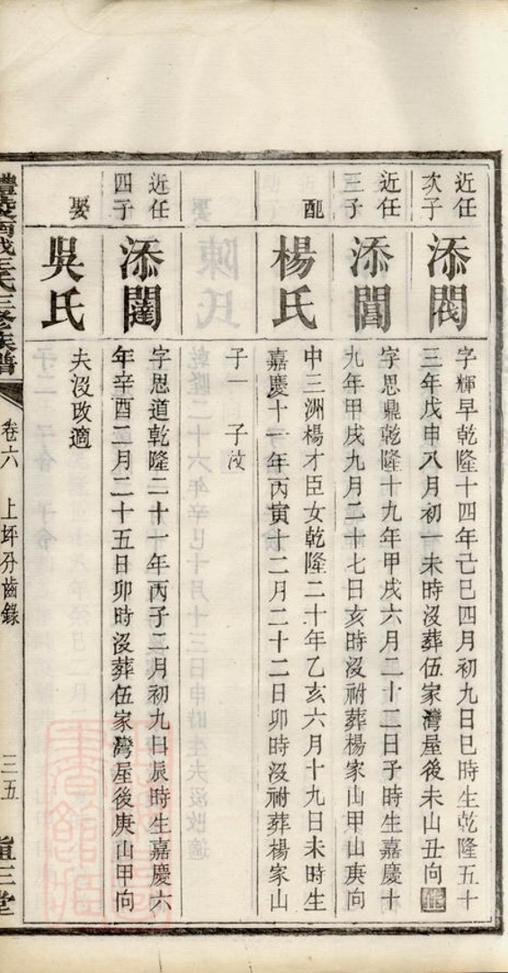 近任
次子
添閥
字輝早乾隆十四年己巳四月初九日巳時生乾隆五十
三年戊申八月初一未時沒葬伍家灣屋後未山丑向
近任
三子
添閶
字思鼎乾隆十九年甲戌六月二十二日子時生嘉慶十
九年甲戌九月二十七日亥時沒祔葬楊家山甲山庚向
配
楊氏
中三洲楊才臣女乾隆二十年乙亥六月十九日未時生
嘉慶十一年丙寅十二月二十二日卯時沒祔葬楊家山
子一 子汶
近任
四子
添闓
字思道乾隆二十一年丙子二月初九日辰時生嘉慶六
年辛酉二月二十五日卯時沒葬伍家灣屋後庚山甲向
娶
吳氏
夫沒改適
醴陵南城王氏三修族譜
卷六
上坪分齒錄
三五